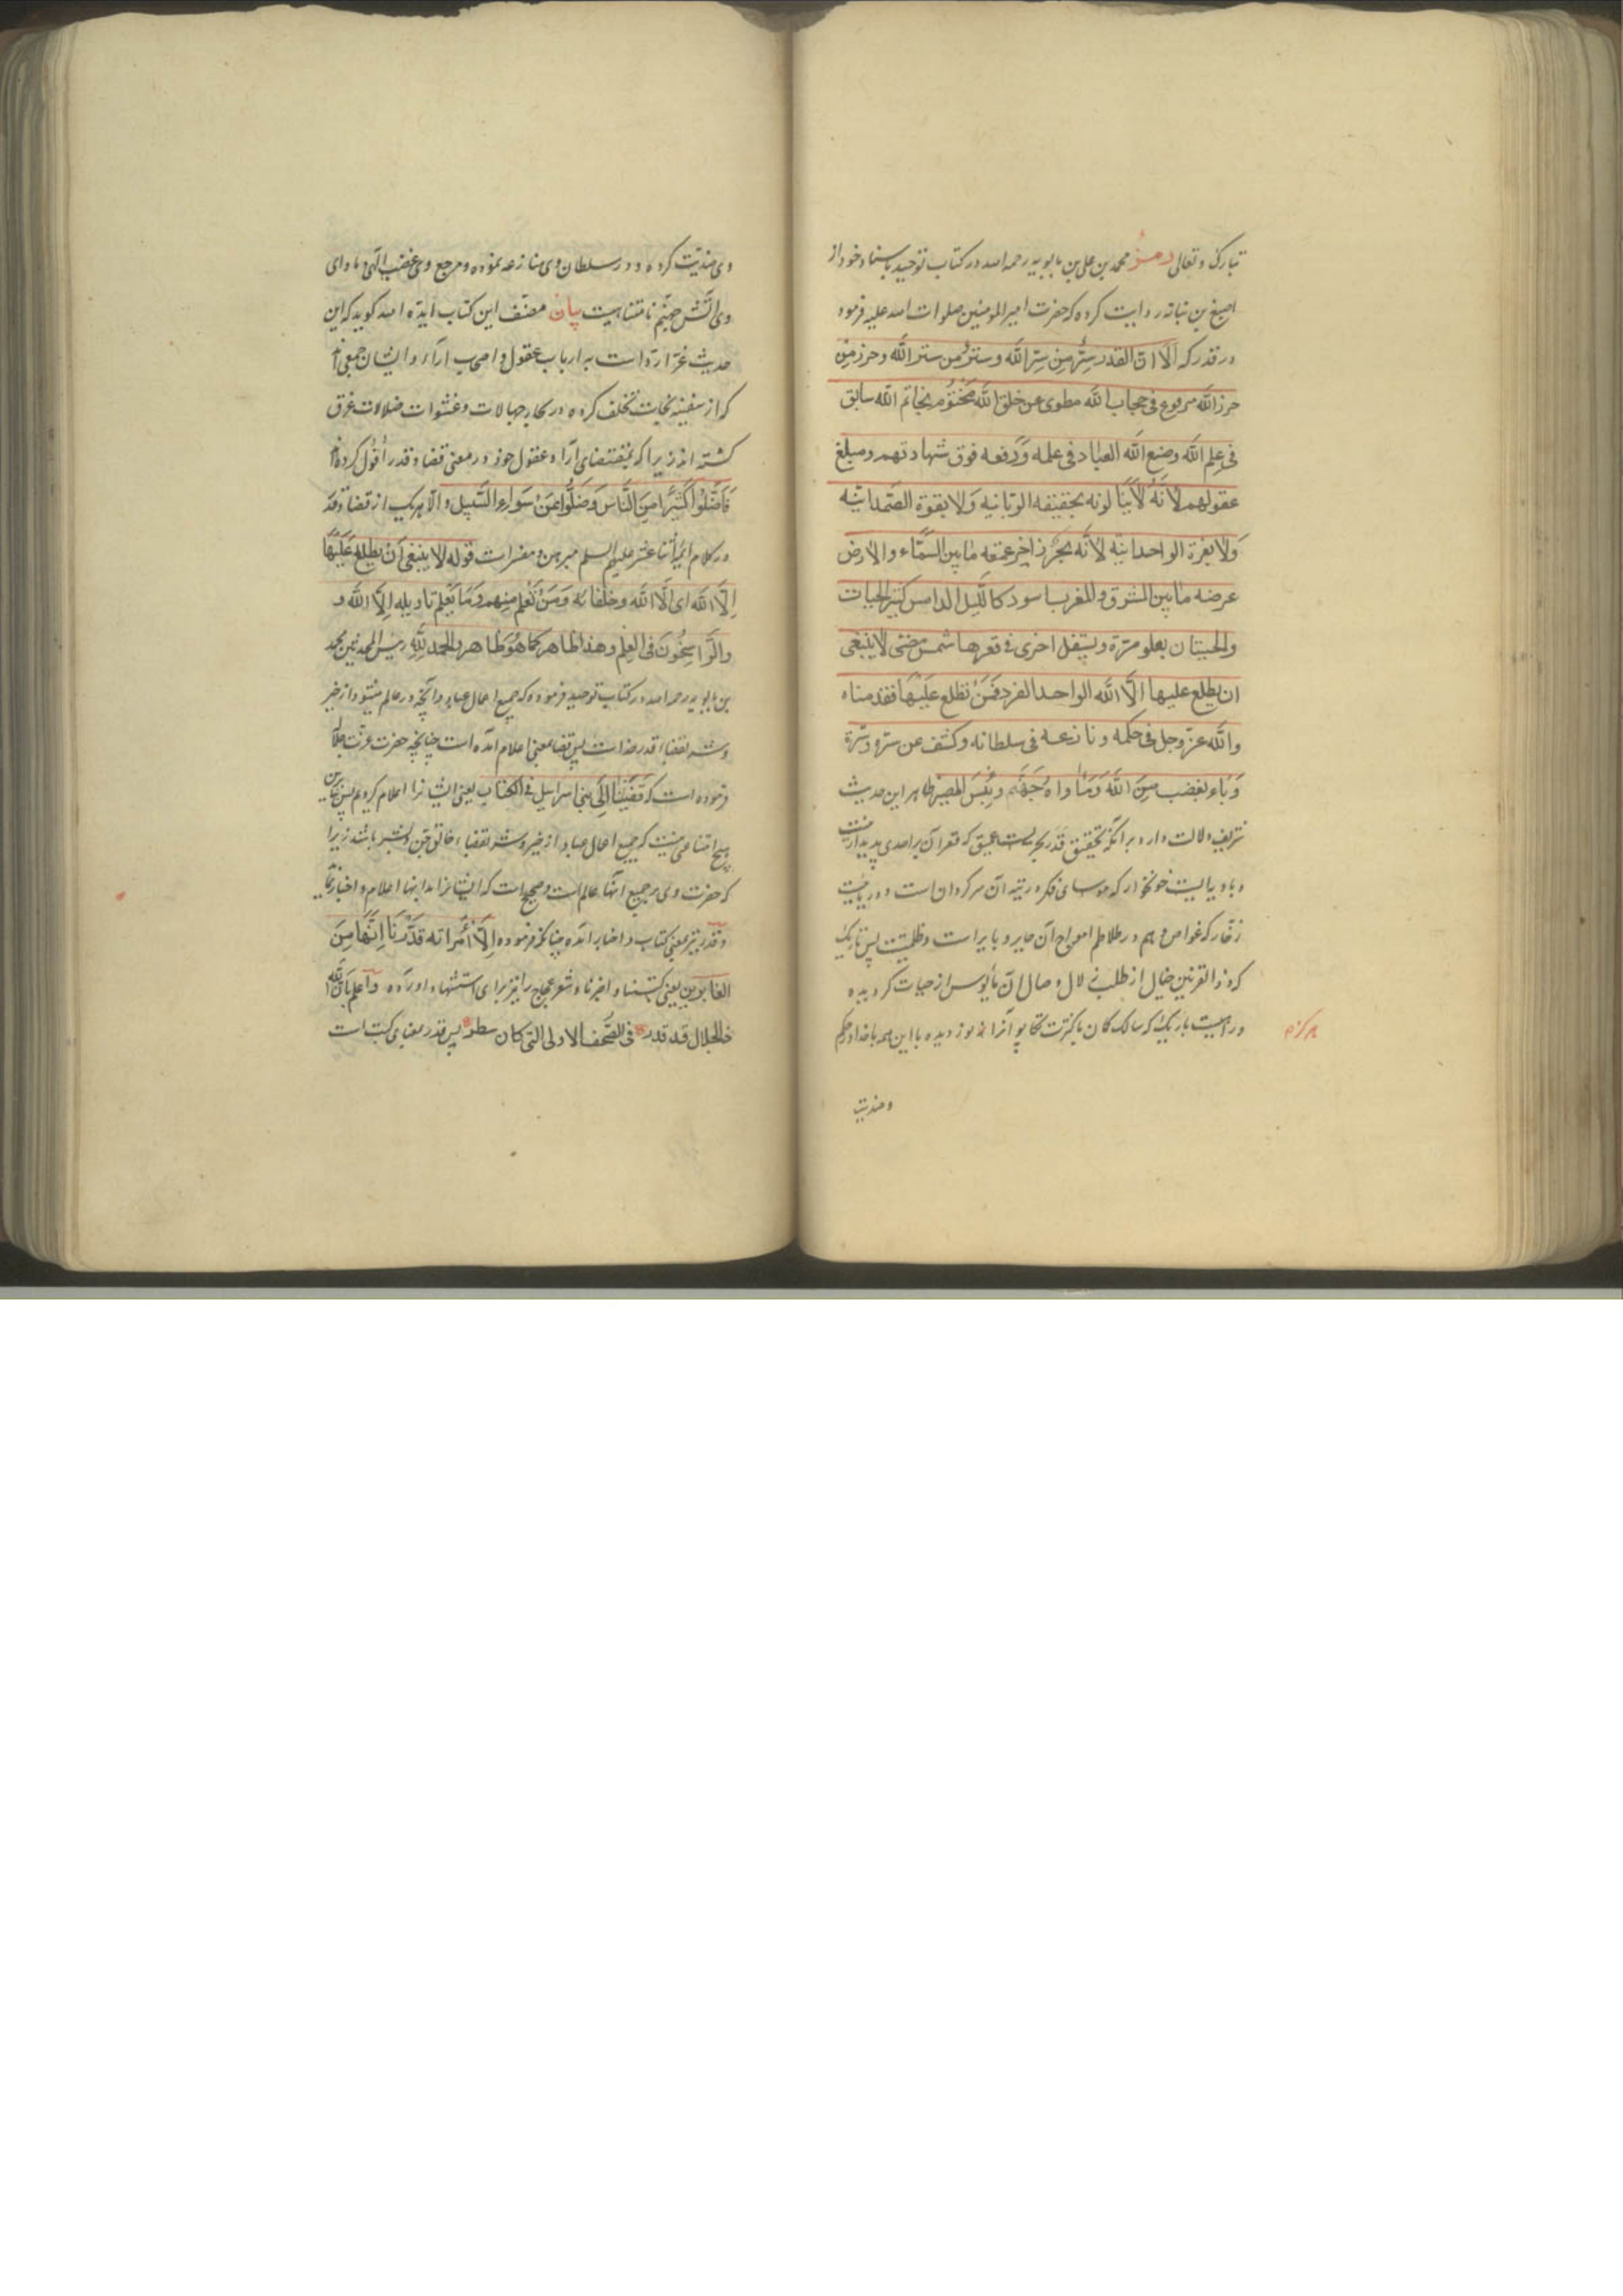 تبارک و تعالی رمز محمد بن علی بن بابویه رحمه الله در کتاب توحید باسناد خود از
اصبغ بن نباته روایت کرده که حضرت امیر المومنین صلوات الله علیه فرمود
در قدر که اَلا انّ القدر سِرٌّ من سِرّ الله و ستر من ستر الله و حرز من
حرز الله مرفوع فی حجاب الله مطوی عن خلق الله مختوم بخاتم الله سابق
فی علم الله وضع الله العباد فی علمه و رفعه فوق شهادتهم و مبلغ
عقولهم لانّه لا ینالونه بحقیقه الربانیه و لا بقوة الصمدانیه
و لا بعزة الواحدانیه لانّه بحر زاخر عمقه ما بین السّماء و الارض
عرضه ما بین المشرق و المغرب اسود کاللّیل الدامس کثیر الحیات
والحیتان یعلو مرّة و یسفل اخری فی قعرها شمس مضئی لا ینبغی
ان یطلع علیها الّا الله الواحد الفرد فَمَنْ تطلع عَلَیها فقد ضاد
والله عزّ وجل فی حکمه و نازعه فی سلطانه و کشف عن ستره و سرّه
وَبَاء بغضب مِنَ اللهِ وَمَأواهُ جَهَنَّم وَ بِئسَ المصیر ظاهر این حدیث
شریف دلالت دارد بر آنکه تحقیق قدر بحریست عمیق که قعر آن بر احدی پدیدار نیست
و بادیه ایست خونخوار که موسای فکر در تیه آن سرکردان است و دریائیست
زخّار که غواص وهم در طلاطم امواج آن حایر و بایر است و ظلمتیست بس تاریک
که ذو القرنین خیال از طلب زلال وصال آن مأیوس از حیات کردیده
و راهیست باریک که سالک کان با کثرت تکاپو آنرا نه نوردیده با این همه با خدا در حکم
هرکز
و ضدیت
وی ضدیّت کرده و در سلطان وی منازعه نموده و مرجع وی غضب الهی و ماوای
وی آتش جهنّم نامتناهیست بیان مصنّف این کتاب ایّده الله کوید که این
حدیث است بر ارباب عقول و اصحاب آراء و ایشان جمعی اند
که از سفینه نجات تخلف کرده در بحار جهالات و غشوات ضلالات غرق
کشته اند زیرا که بمقتضای آرا و عقول خود در معنی قضا و قدر اقول کرده اند
فَاَضَلّوُا کَثیراً مِنَ النَّاس وَ ضَلُّوا عَنْ سَوَاءِ السَّبیل و الّا هریک از قضا و قدر
در کلام ائمه اثنا عشر علیهم السلم مبرهن و مفسرات قوله لا ینبغی اَنْ یطلع عَلَیْها
اِلّا الله ای الّا الله و خلفائه وَ مَنْ تعلم منهم وَ مَا یَعْلَم تاویله اِلّا الله و
والرّاسِخُونَ فی العِلم و هذا ظاهر کما هُوَ ظاهر والحمد لله رئیس المحدثین محمد
بن بابویه رحمه الله در کتاب توحید فرموده که جمیع اعمال عباد و آنچه در عالم میشود از خیر
و شر بقضا و قدر خداست پس قضا بمعنی اعلام آمده است چنانچه حضرت عزت جلاله
فرموده است که قَضَیْنَا اِلَی بنی اسرائیل فی الکتاب یعنی ایشانرا اعلام کردیم پس بنابرین
هیچ امتناعی نیست که جمیع اعمال عباد از خیر و شر بقضاء خالق جن و بشر باشد زیرا
که حضرت وی بر جمیع آنها عالم است و صحیح است که ایشانرا بدانها اعلام و اخبار نماید
و قدر نیز بمعنی کتاب و اخبار آمده چنانکه فرموده اِلّا امْرَاته قَدَّرْنَا اِنَّها مِنَ
الغابرین یعنی کتبنا و اخبرنا و شعر عجاج را نیز برای استشهاد آورده و اعلم بان الله
ذا لجلال قد قدر فی الصّحف الاولی التی کان سطر پس قدر بمعنای کتب است